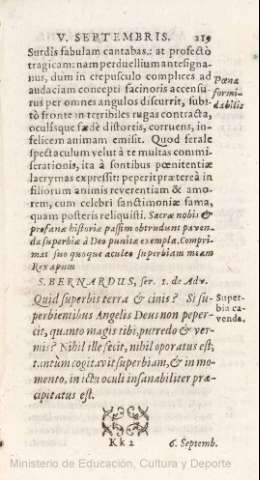 V. SEPTEMBRIS. 219
Surdis fabulam cantabas.: at profecto
tragicam: nam perduellium antesigna-
nus, dum in crepusculo complices ad
audaciam concepti facinoris accensu-
rus per omnes angulos discurrit, subi-
tò fronte in terribiles rugas contracta,
oculisque fædè distortis, corruens, in-
felicem animam emisit. Quod ferale
spectaculum velut à te multas commi-
serationis, ita à fontibus pœnitentiæ
lacrymas expressit: peperit præterea in
filiorum animis reverentiam & amo-
rem, cum celebri sanctimoniæ fama,
quam posteris reliquisti. Sacræ nobis &
profanæ historiæ passim obtrudunt paven-
da superbiæ à Deo punitæ exempla. Compri-
mas suo quoque aculeo superbiam meam
Rex apum
Pœna
formi-
dabilis
S. BERNARDUS, ser. 1. de Adv.
Quid superbis terra & cinis? Si su-
perbientibus Angelis Deus non peper-
cit, quanto magis tibi, putredo & ver-
mis? Nihil ille fecit, nihil operatus est,
tantùm cogitavit superbiam, & in mo-
mento, in ictu oculi insanabiliter præ-
cipitatus est.
Super-
bia ca-
venda.
Kk 2 6. Septemb.
Ministerio de Educación, Cultura y Deporte